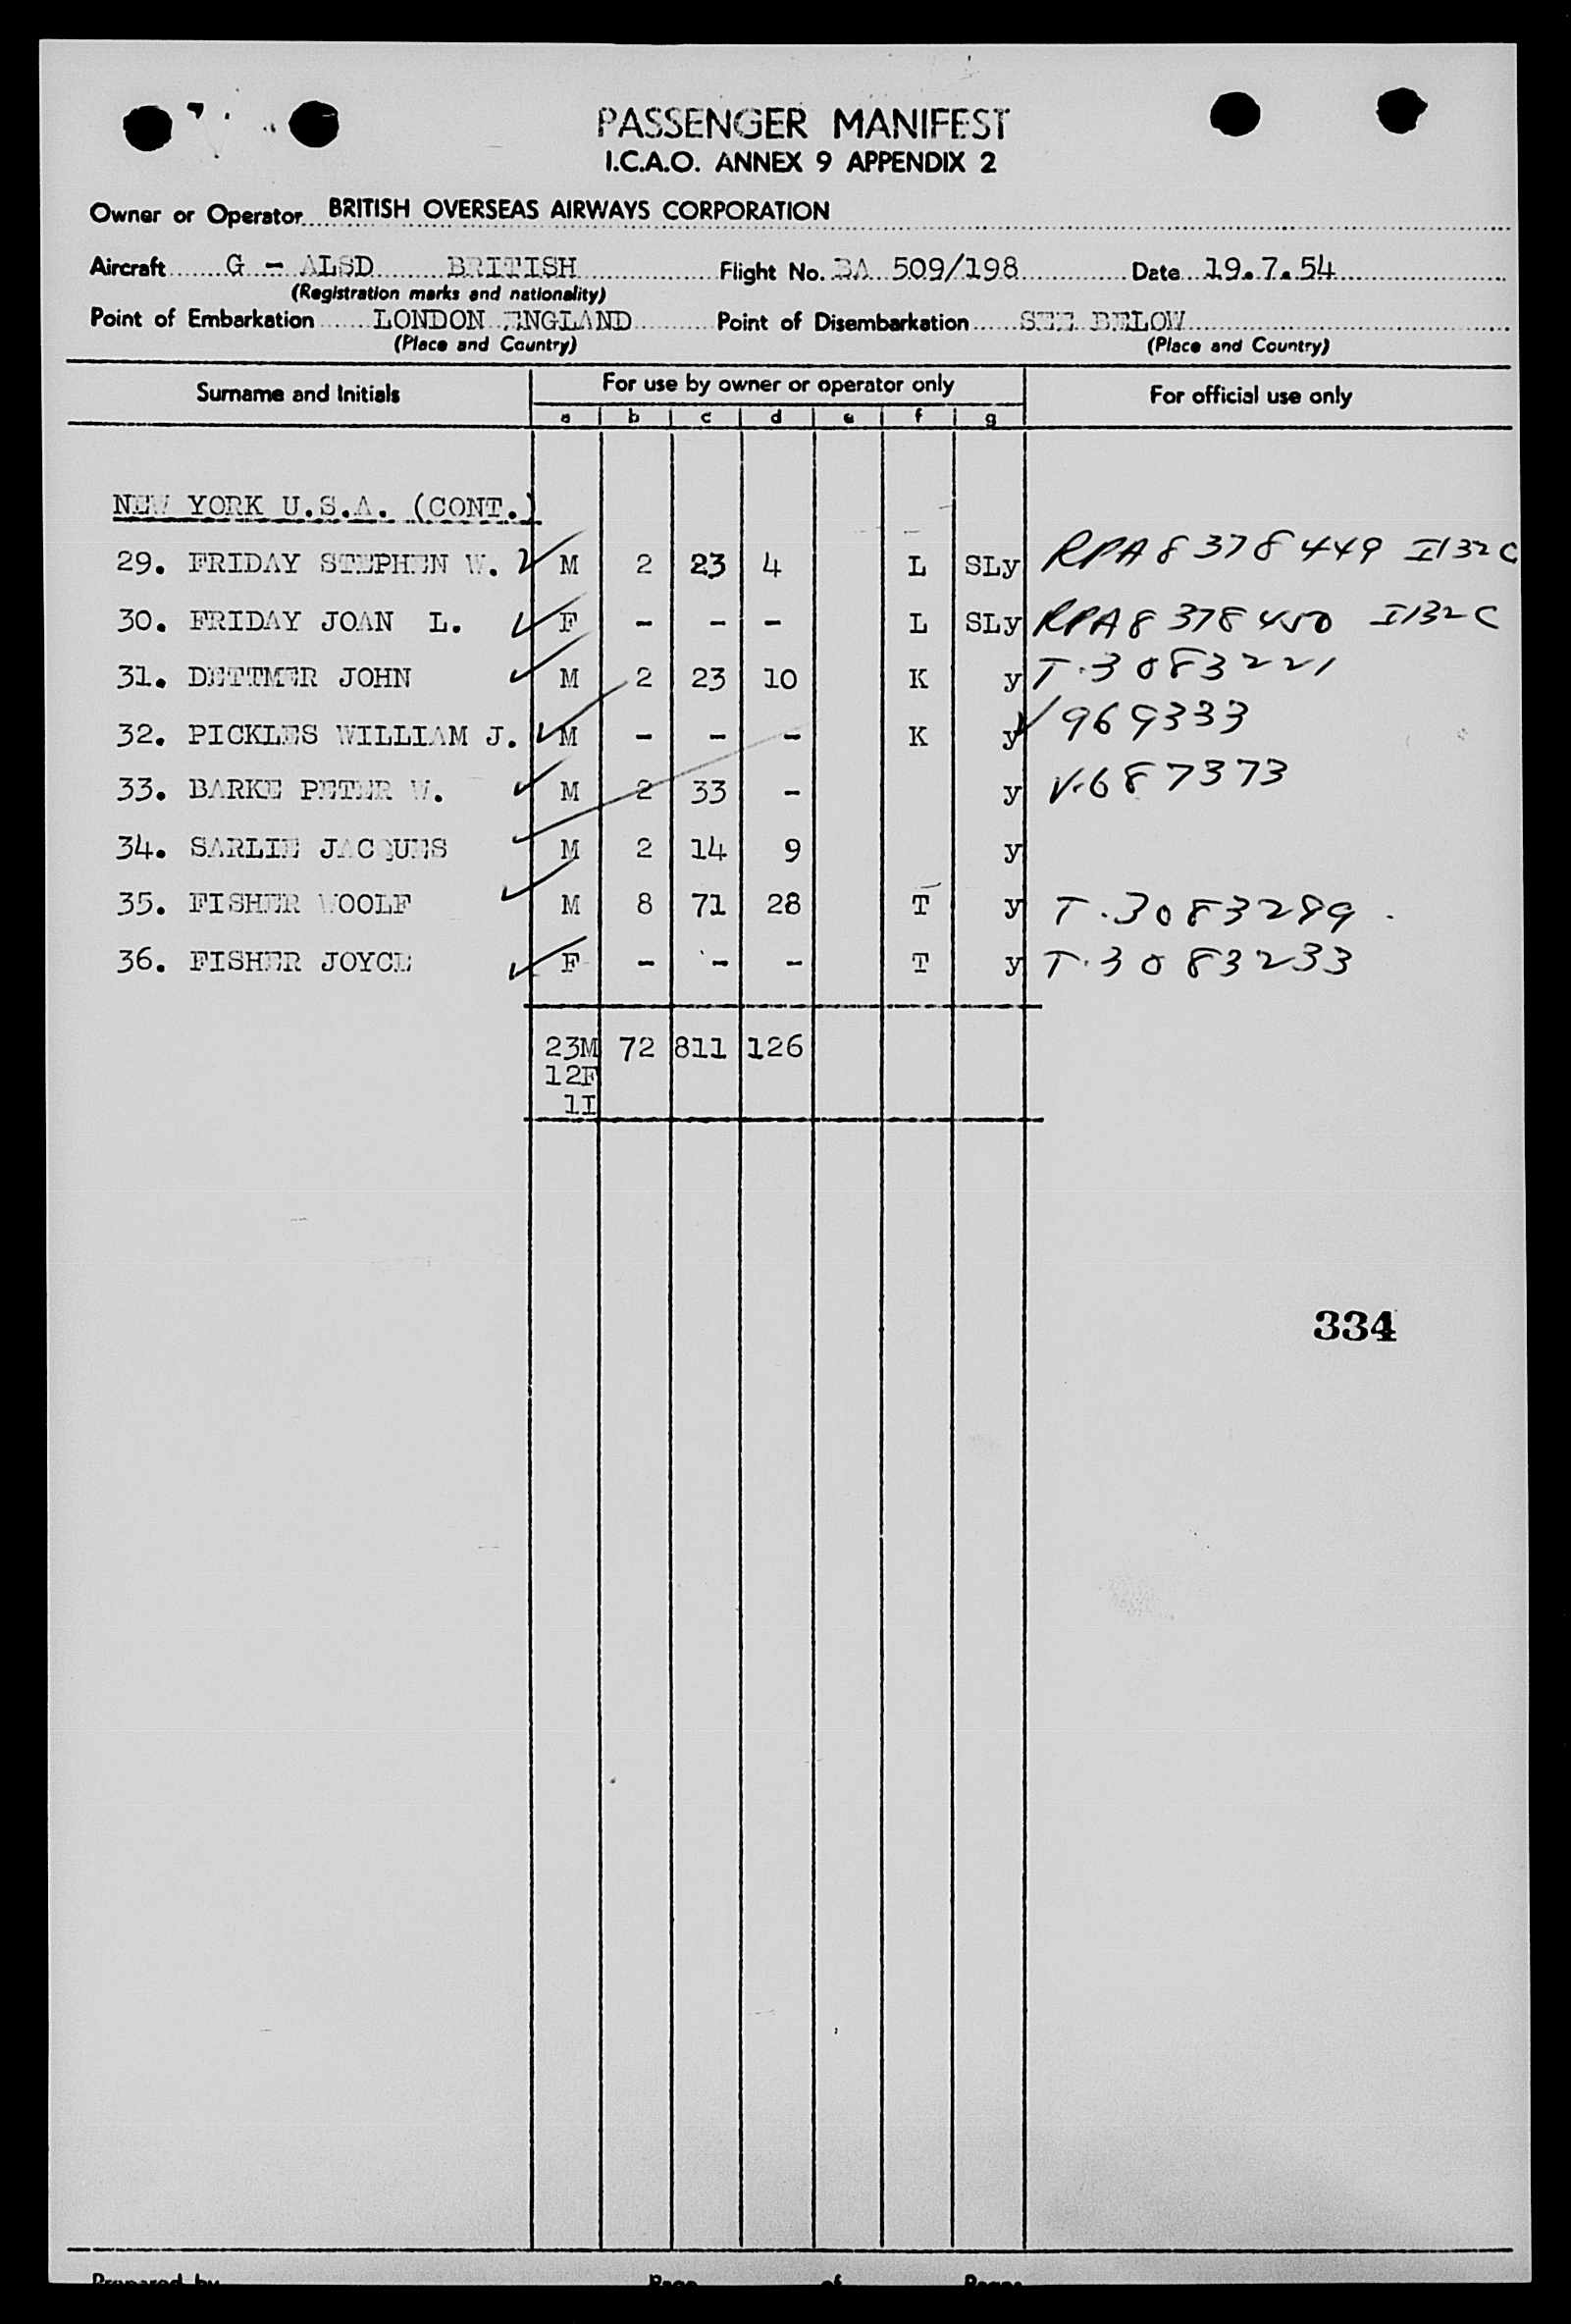 PASSENGER MANIFEST
I.C.A.O. ANNEX 9 APPENDIX 2
Owner or Operator BRITISH OVERSEAS AIRWAYS CORPORATION
Aircraft G - ALSD BRITISH Flight No. BA 509/198 Date 19.7.54
(Registration marks and nationality)
Point of Embarkation LONDON ENGLAND Point of Disembarkation SEE BELOW
(Place and Country) (Place and Country)
Surname and Initials For use by owner or operator only For official use only
a b c d e f g
NEW YORK U.S.A. (CONT.)
29. FRIDAY STEPHEN W. M 2 23 4 L SLy RPA 8378449 I132C
30. FRIDAY JOAN L. F - - - L SLy RPA 8378450 I132C
31. DETTMER JOHN M 2 23 10 K y T.3083221
32. PICKLES WILLIAM J. M - - - K y V969333
33. BARKE PETER W. M 2 33 - y V.687373
34. SARLIE JACQUES M 2 14 9 y
35. FISHER WOOLF M 8 71 28 T y T.3083299.
36. FISHER JOYCE F - - - T y T.3083233
23M 72 811 126
12F
1I
334
Prepared by Page of Pages